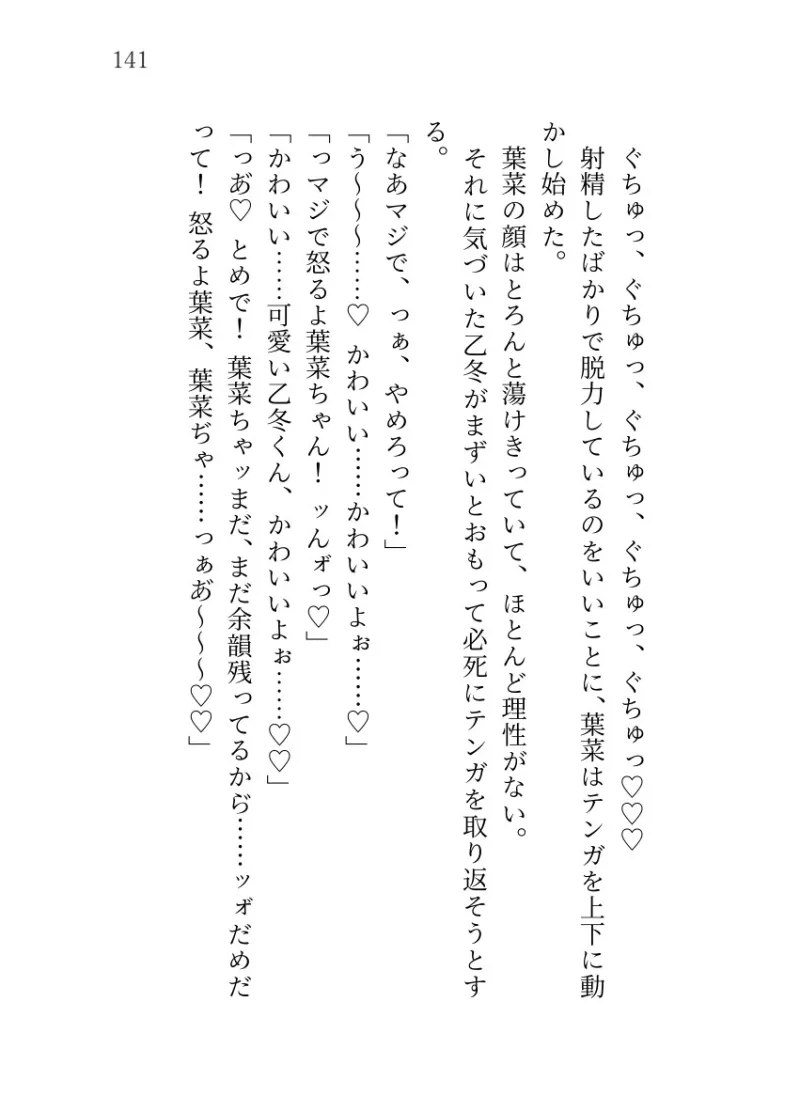 141
ぐちゅっ、ぐちゅっ、ぐちゅっ、ぐちゅっ、ぐちゅっ♡♡♡
射精したばかりで脱力しているのをいいことに、葉菜はテンガを上下に動
かし始めた。
葉菜の顔はとろんと蕩けきっていて、ほとんど理性がない。
それに気づいた乙冬がまずいとおもって必死にテンガを取り返そうとす
る。
「なあマジで、っぁ、やめろって！」
「う〜〜〜……♡ かわいい……かわいいよぉ……♡」
「っマジで怒るよ葉菜ちゃん！ ッんォ゙っ♡」
「かわいい……可愛い乙冬くん、かわいいよぉ……♡♡」
「っあ゙♡ とめで！ 葉菜ちゃッまだ、まだ余韻残ってるから゙……ッォ゙だめだ
って！ 怒るよ葉菜、葉菜ぢゃ……っぁあ゙〜〜〜♡♡」